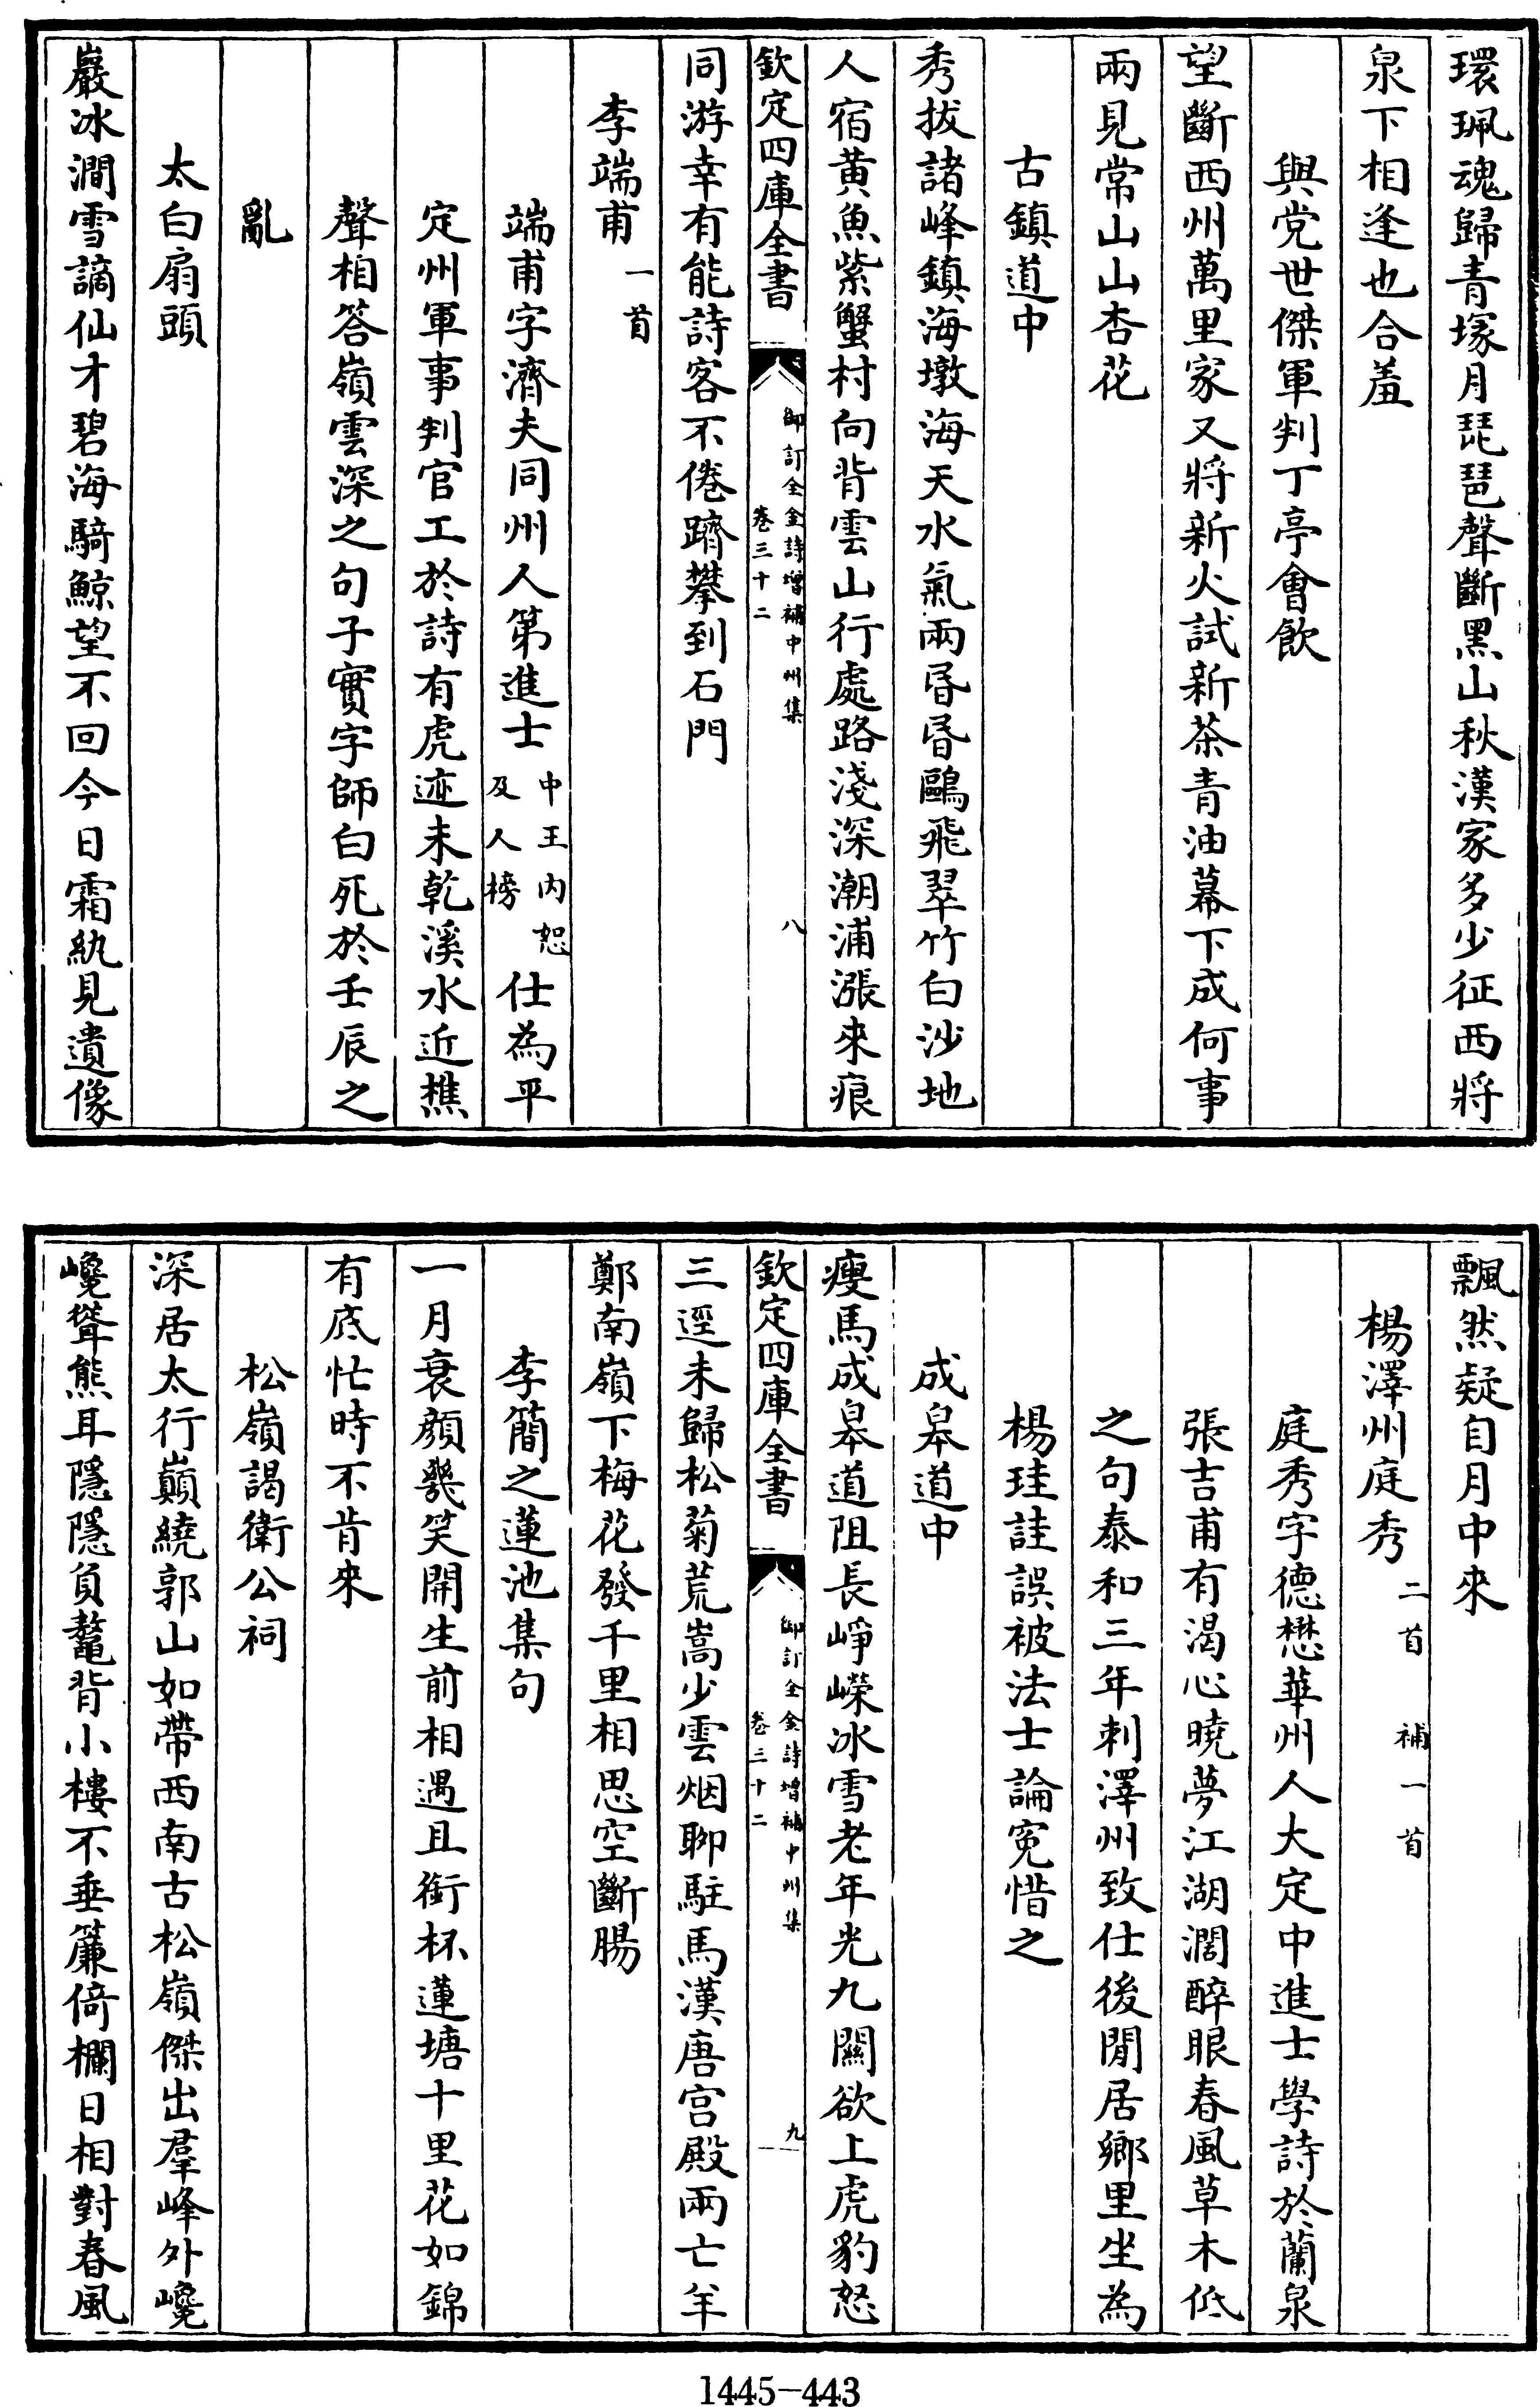 環珮魂歸青塚月琵琶聲斷黑山秋漢家多少征西將
泉下相逢也合羞
與党世傑軍判丁亭會飲
望斷西州萬里家又將新火試新茶青油幕下成何事
兩見常山山杏花
古鎮道中
秀拔諸峰鎮海墩海天水氣兩昬昬鷗飛翠竹白沙地
人宿黄魚紫蟹村向背雲山行處路淺深潮浦漲來痕
欽定四庫全書
御訂全金詩增補中州集
卷三十二
八
同游幸有能詩客不倦躋攀到石門
李端甫
一首
端甫字濟夫同州人第進士
中王内恕
及人榜
仕為平
定州軍事判官工於詩有虎迹未乾溪水近樵
聲相答嶺雲深之句子實字師白死於壬辰之
亂
太白扇頭
巖冰澗雪謫仙才碧海騎鯨望不回今日霜紈見遺像
飄然疑自月中來
楊澤州庭秀
二首
補一首
庭秀字德懋華州人大定中進士學詩於蘭泉
張吉甫有渴心曉夢江湖濶醉眼春風草木低
之句泰和三年刺澤州致仕後閒居鄉里坐為
楊珪詿誤被法士論寃惜之
成皋道中
瘦馬成皋道阻長崢嶸冰雪老年光九關欲上虎豹怒
欽定四庫全書
御訂全金詩增補中州集
卷三十二
九
三逕未歸松菊荒嵩少雲烟聊駐馬漢唐宫殿兩亡羊
鄭南嶺下梅花發千里相思空斷腸
李簡之蓮池集句
一月衰顔幾笑開生前相遇且銜杯蓮塘十里花如錦
有底忙時不肯來
松嶺謁衛公祠
深居太行巔繞郭山如帶西南古松嶺傑出羣峰外巉
巉聳熊耳隱隱負鼇背小樓不垂簾倚欄日相對春風
1445-443